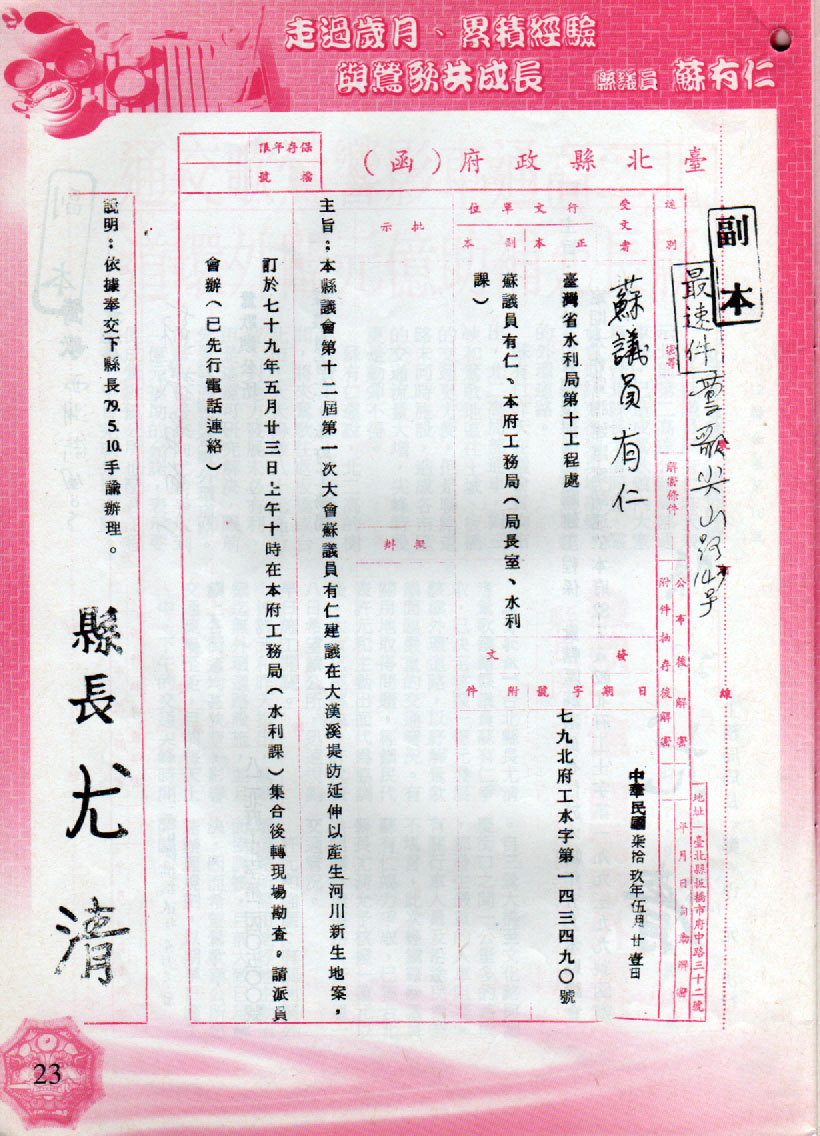 走過歲月、累積經驗
與鶯歌共成長
縣議員 蘇有仁
臺北縣政府（函）
保存年限
檔號
副本
最速件
鶯歌尖山路147號
地址：臺北縣板橋市府中路三十二號
速別
解密條件
公布後解密
附件抽存後解密
年月日自動解密
受文者
蘇議員有仁
行文單位
正本
副本
臺灣省水利局第十工程處
蘇議員有仁、本府工務局（局長室、水利
課）
發文
日期
字號
附件
中華民國柒拾玖年伍月廿壹日
七九北府工水字第一四三四九〇號
批示
擬辦
主旨：本縣議會第十二屆第一次大會蘇議員有仁建議在大漢溪堤防延伸以產生河川新生地案，
訂於七十九年五月廿三日上午十時在本府工務局（水利課）集合後轉現場勘查。請派員
會辦（已先行電話連絡）
說明：依據奉交下縣長79.5.10.手諭辦理。
縣長尤清
裝
訂
線
23